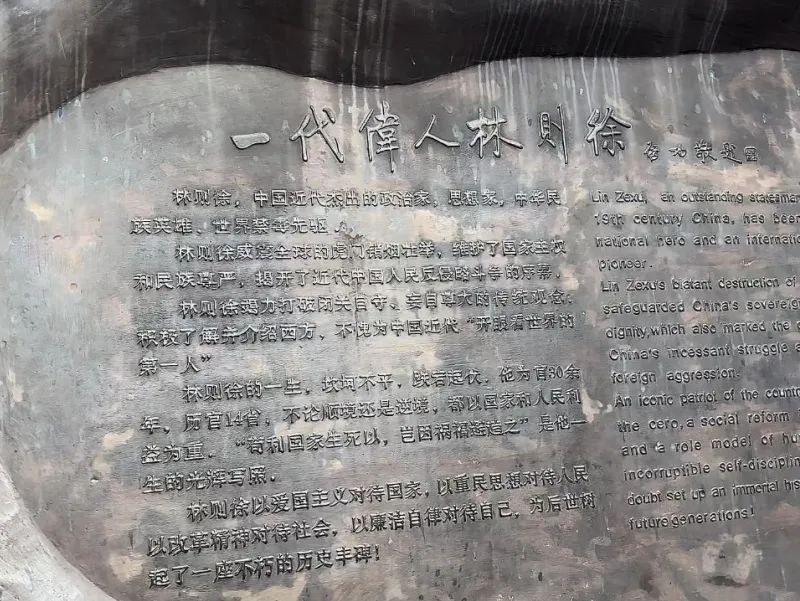 一代偉人林則徐
林则徐，中国近代杰出的政治家，思想家，中华民
族英雄、世界禁毒先驱．
林则徐威震全球的虎门销烟壮举，维护了国家主权
和民族尊严，揭开了近代中国人民反侵略斗争的序幕．
林则徐竭力打破闭关自守、妄自尊大的传统观念；
积极了解并介绍西方，不愧为中国近代“开眼看世界的
第一人”
林则徐的一生，坎坷不平，跌宕起伏，他为官30余
年，历官14省，不论顺境还是逆境，都以国家和人民利
益为重．“苟利国家生死以，岂因祸福避趋之”是他一
生的光辉写照．
林则徐以爱国主义对待国家，以重民思想对待人民
以改革精神对待社会，以廉洁自律对待自己，为后世树
起了一座不朽的历史丰碑！
Lin Zexu, an outstanding statesman
19th century China, has been
national hero and an internation
pioneer.
Lin Zexu's blatant destruction of
safeguarded China's sovereign
dignity,which also marked the
China's incessant struggle a
foreign aggression.
An iconic patriot of the countr
the cero, a social reform
and a role model of hu
incorruptible self-disciplin
doubt set up an immortal his
future generations!